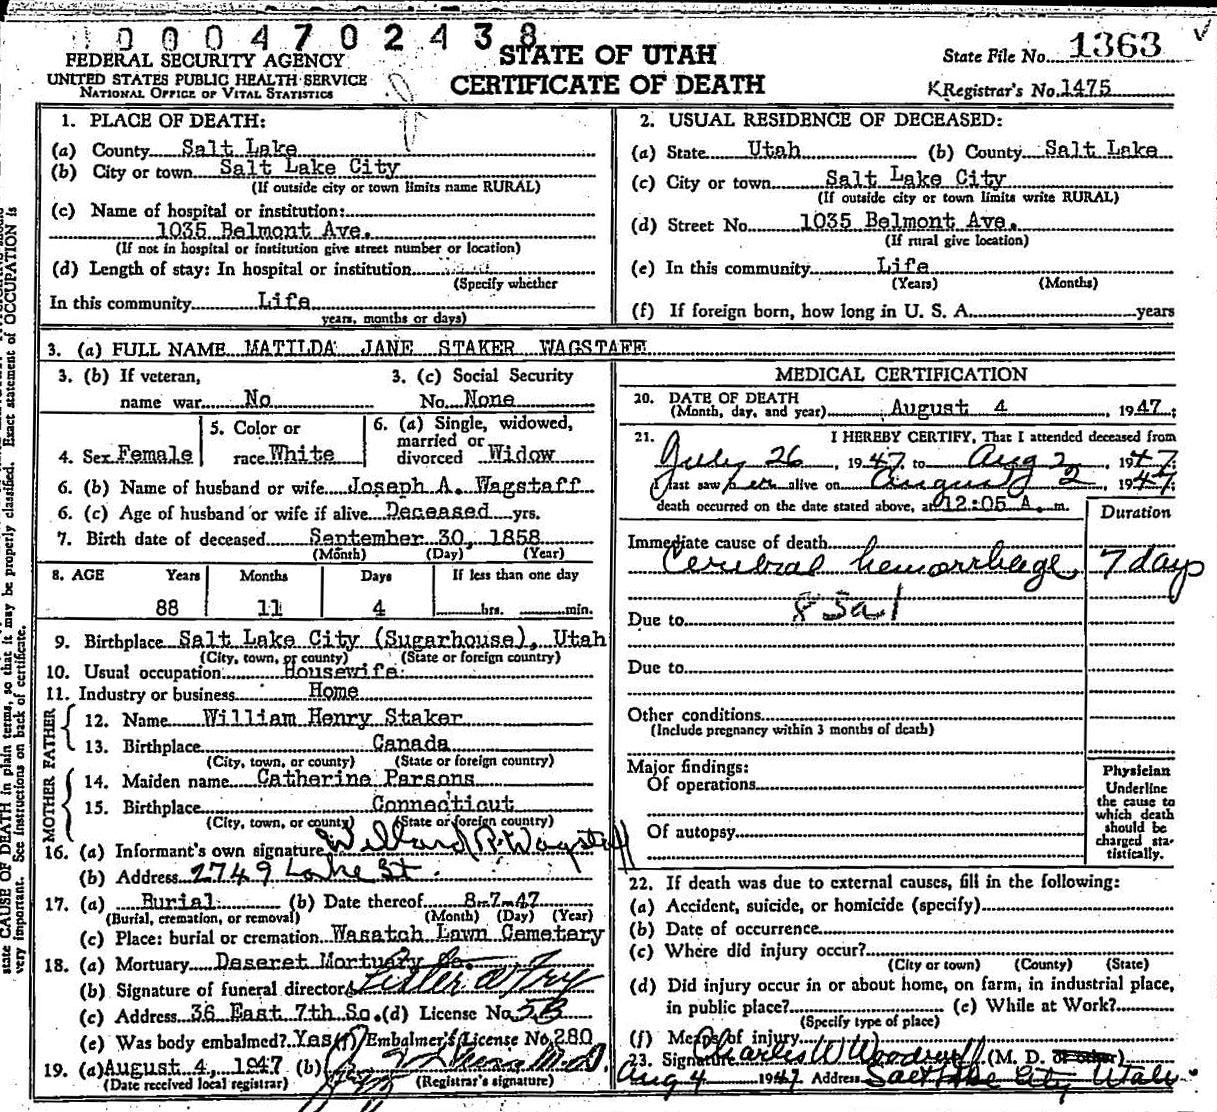 0004702438
FEDERAL SECURITY AGENCY
UNITED STATES PUBLIC HEALTH SERVICE
NATIONAL OFFICE OF VITAL STATISTICS
STATE OF UTAH
CERTIFICATE OF DEATH
State File No. 1363
Registrar's No. 1475
1. PLACE OF DEATH:
(a) County Salt Lake
(b) City or town Salt Lake City
(If outside city or town limits name RURAL)
(c) Name of hospital or institution:
1035 Belmont Ave.
(If not in hospital or institution give street number or location)
(d) Length of stay: In hospital or institution
(Specify whether
In this community Life
years, months or days)
2. USUAL RESIDENCE OF DECEASED:
(a) State Utah (b) County Salt Lake
(c) City or town Salt Lake City
(If outside city or town limits write RURAL)
(d) Street No. 1035 Belmont Ave.
(If rural give location)
(e) In this community Life
(Years) (Months)
(f) If foreign born, how long in U. S. A. years
3. (a) FULL NAME MATILDA JANE STAKER WAGSTAFF
3. (b) If veteran, 3. (c) Social Security
name war No No. None
4. Sex Female
5. Color or
race White
6. (a) Single, widowed,
married or
divorced Widow
6. (b) Name of husband or wife Joseph A. Wagstaff
6. (c) Age of husband or wife if alive Deceased yrs.
7. Birth date of deceased September 30, 1858
(Month) (Day) (Year)
8. AGE Years Months Days If less than one day
88 11 4 hrs. min.
9. Birthplace Salt Lake City (Sugarhouse), Utah
(City, town, or county) (State or foreign country)
10. Usual occupation Housewife
11. Industry or business Home
FATHER
12. Name William Henry Staker
13. Birthplace Canada
(City, town, or county) (State or foreign country)
MOTHER
14. Maiden name Catherine Parsons
15. Birthplace Connecticut
(City, town, or county) (State or foreign country)
16. (a) Informant's own signature Willard R. Wagstaff
(b) Address 2749 Lake St.
17. (a) Burial (b) Date thereof 8-7-47
(Burial, cremation, or removal) (Month) (Day) (Year)
(c) Place: burial or cremation Wasatch Lawn Cemetery
18. (a) Mortuary Deseret Mortuary Co.
(b) Signature of funeral director
(c) Address 36 East 7th So. (d) License No. 53
(e) Was body embalmed? Yes (f) Embalmer's License No. 280
19. (a) August 4, 1947 (b)
(Date received local registrar) (Registrar's signature)
MEDICAL CERTIFICATION
20. DATE OF DEATH
(Month, day, and year) August 4, 1947;
21. I HEREBY CERTIFY, That I attended deceased from
July 26, 1947 to Aug 2, 1947
I last saw her alive on August 2, 1947;
death occurred on the date stated above, at 12:05 A. m.
Duration
Immediate cause of death
Cerebral hemorrhage 7 days
83a1
Due to
Due to
Other conditions
(Include pregnancy within 3 months of death)
Major findings:
Of operations
Of autopsy
Physician
Underline
the cause to
which death
should be
charged sta-
tistically.
22. If death was due to external causes, fill in the following:
(a) Accident, suicide, or homicide (specify)
(b) Date of occurrence
(c) Where did injury occur?
(City or town) (County) (State)
(d) Did injury occur in or about home, on farm, in industrial place,
in public place? (e) While at Work?
(Specify type of place)
(f) Means of injury
23. Signature Charles W Woodruff (M. D. or other)
Aug 4 1947 Address Salt Lake City Utah
state CAUSE OF DEATH in plain terms, so that it may be properly classified. Exact statement of OCCUPATION is
very important. See instructions on back of certificate.